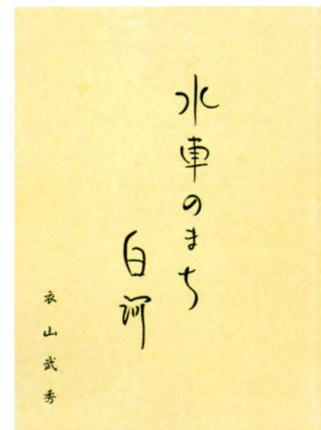 水車のまち
白河
衣山武秀